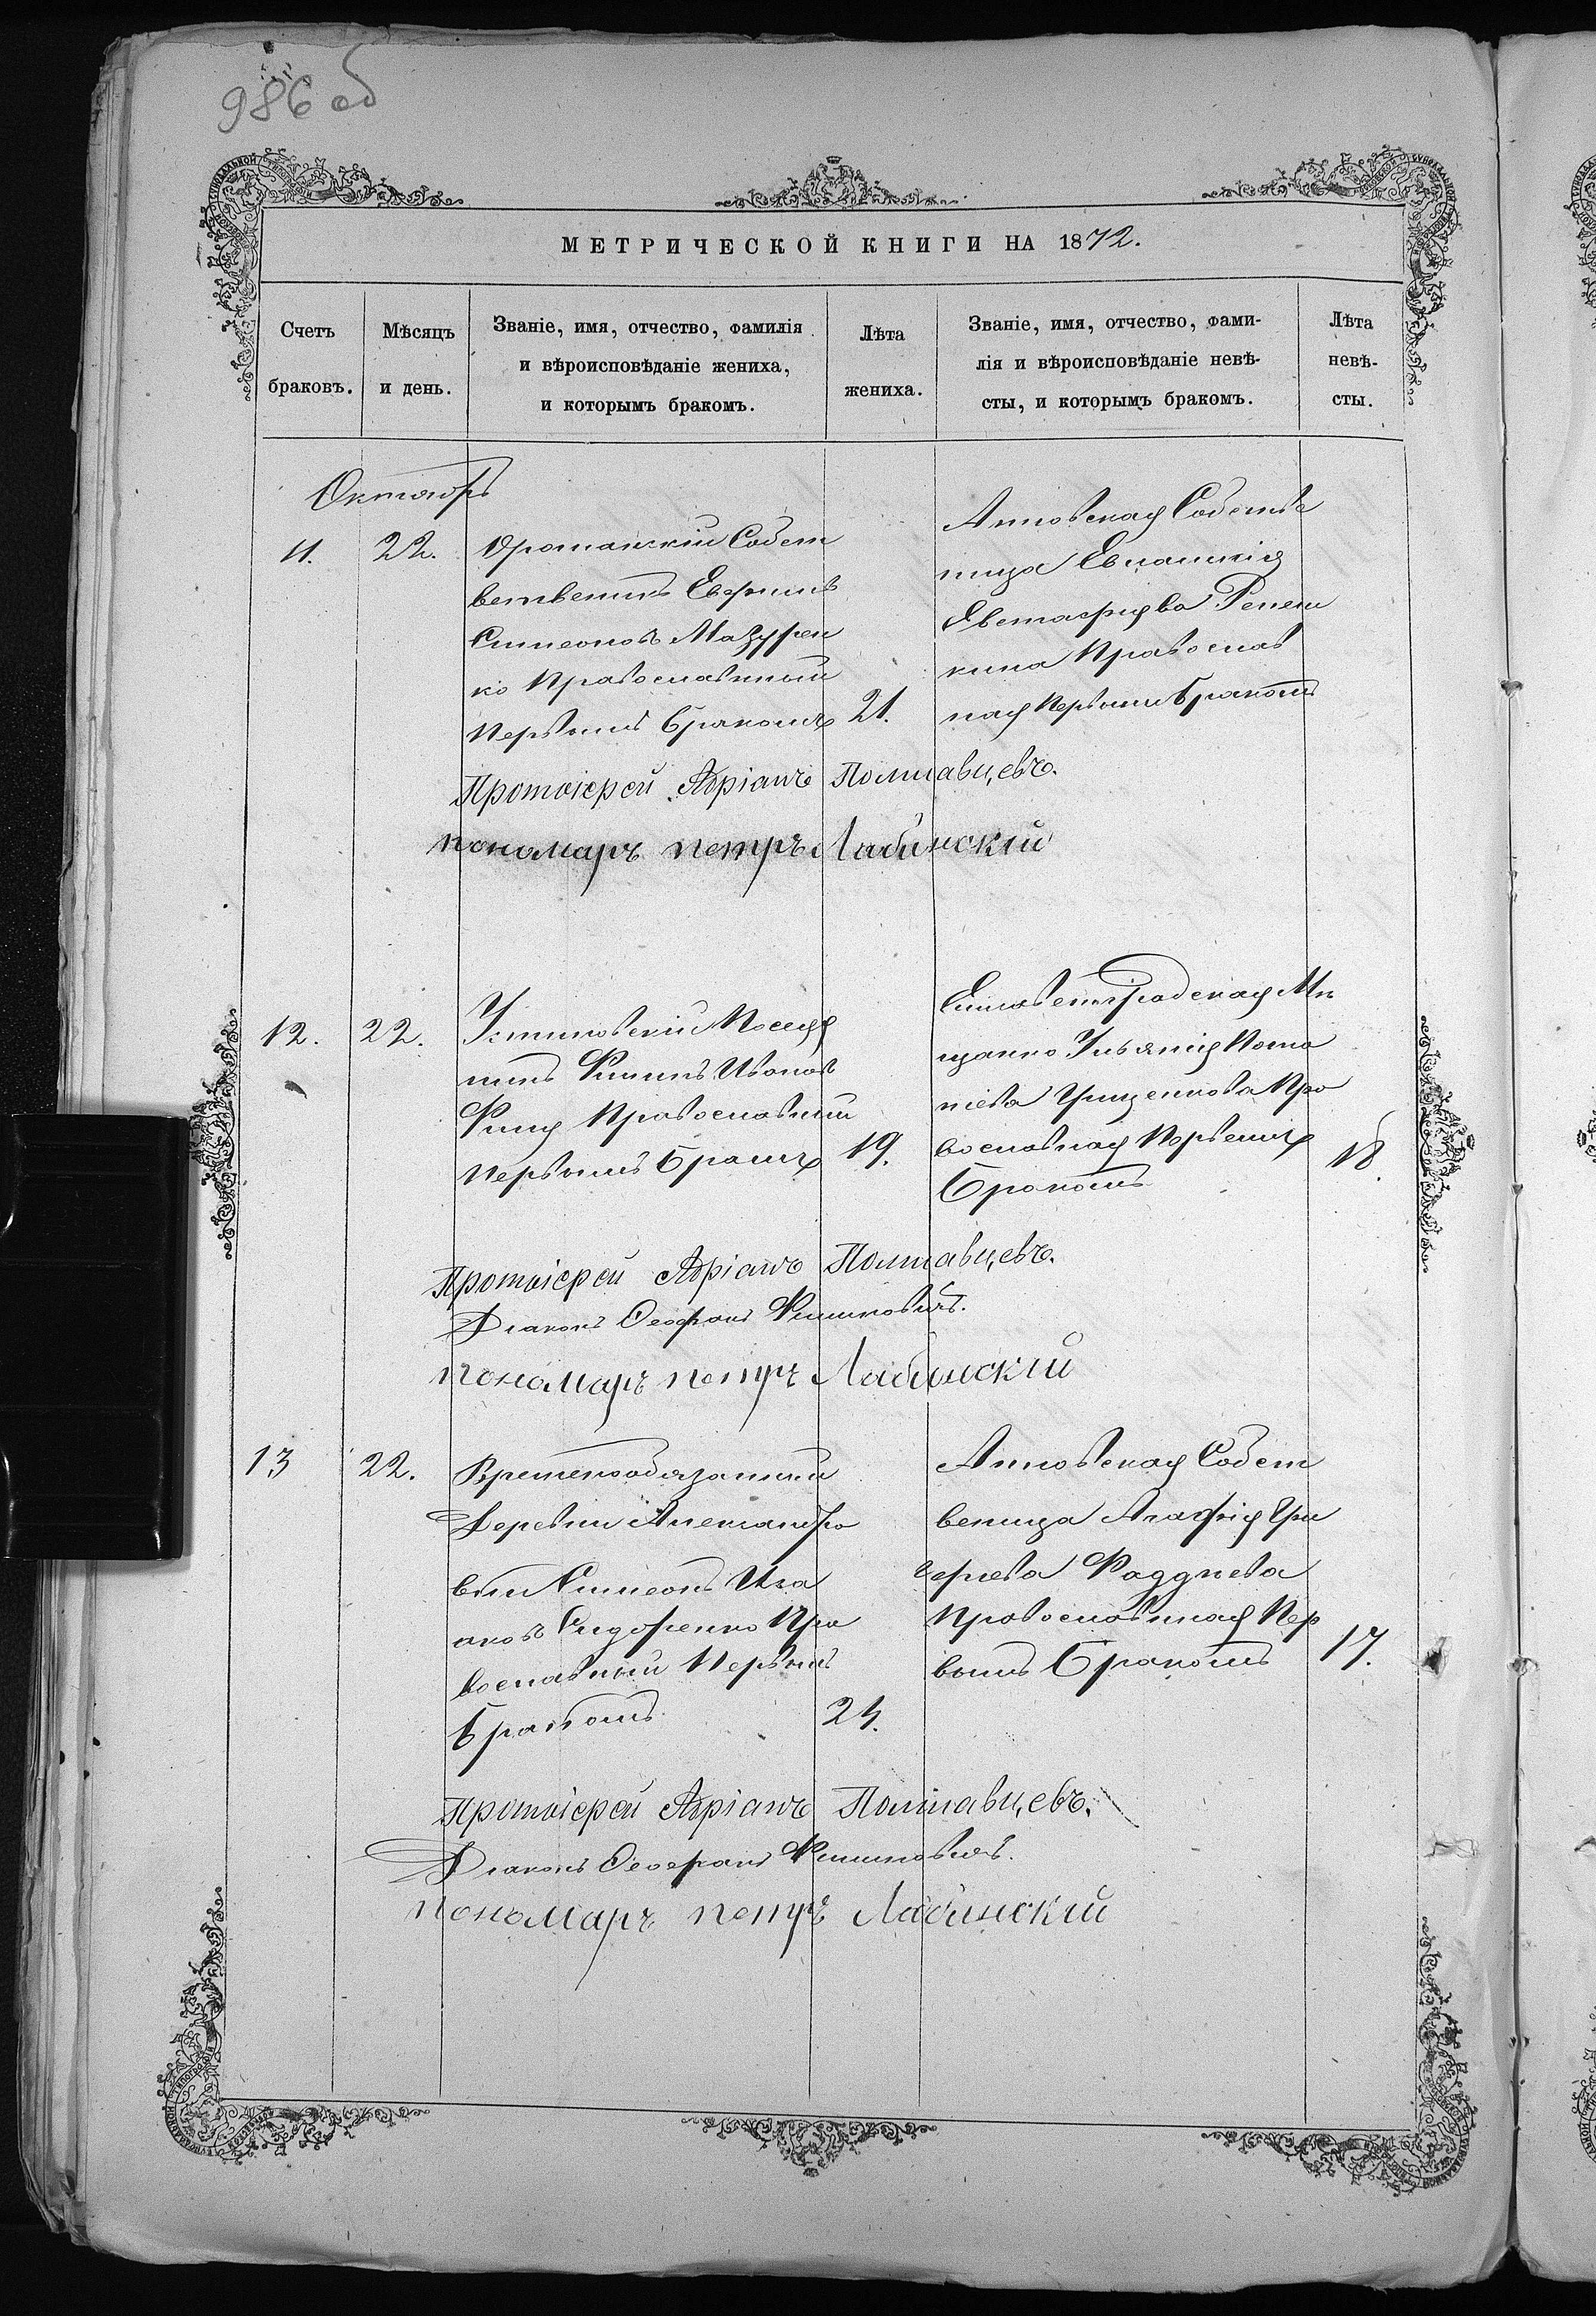 986 об
МЕТРИЧЕСКОЙ КНИГИ НА 1872.
Счетъ браковъ.
Мѣсяцъ и день.
Званіе, имя, отчество, фамилія
и вѣроисповѣданіе жениха,
и которымъ бракомъ.
Лѣта жениха.
Званіе, имя, отчество, фами-
лія и вѣроисповѣданіе невѣ-
сты, и которымъ бракомъ.
Лѣта невѣ-
сты.
Октябрь
11. 22.
Собст
венникъ
Симеоновъ Мазурен
ко Православный
Первымъ Бракомъ 21.
Анновская Собстве
ница Евдокія
Евстафіева
Православ
ная Первымъ Бракомъ
Протоіерей Адріанъ Полтавцевъ.
пономаръ петръ Лабинскій
12. 22.
Поселя
нинъ Филипъ Ивановъ
Православный
Первымъ Бракомъ 19.
Елисаветградская Мѣ
щанка
Грищенкова Пра
вославная Первымъ
Бракомъ 18.
Протоіерей Адріанъ Полтавцевъ.
Діаконъ Ѳеофанъ
пономаръ петръ Лабинскій
13 22.
Временнообязанный
Деревни Александро
вки Симеонъ Иса
аковъ Сидоренко Пра
вославный Первымъ
Бракомъ
Анновская Собст
веница Агафія Гри
горіева Фаддѣева
Православная Пер
вымъ Бракомъ 17.
Протоіерей Адріанъ Полтавцевъ.
Діаконъ Ѳеофанъ
пономаръ петръ Лабинскій